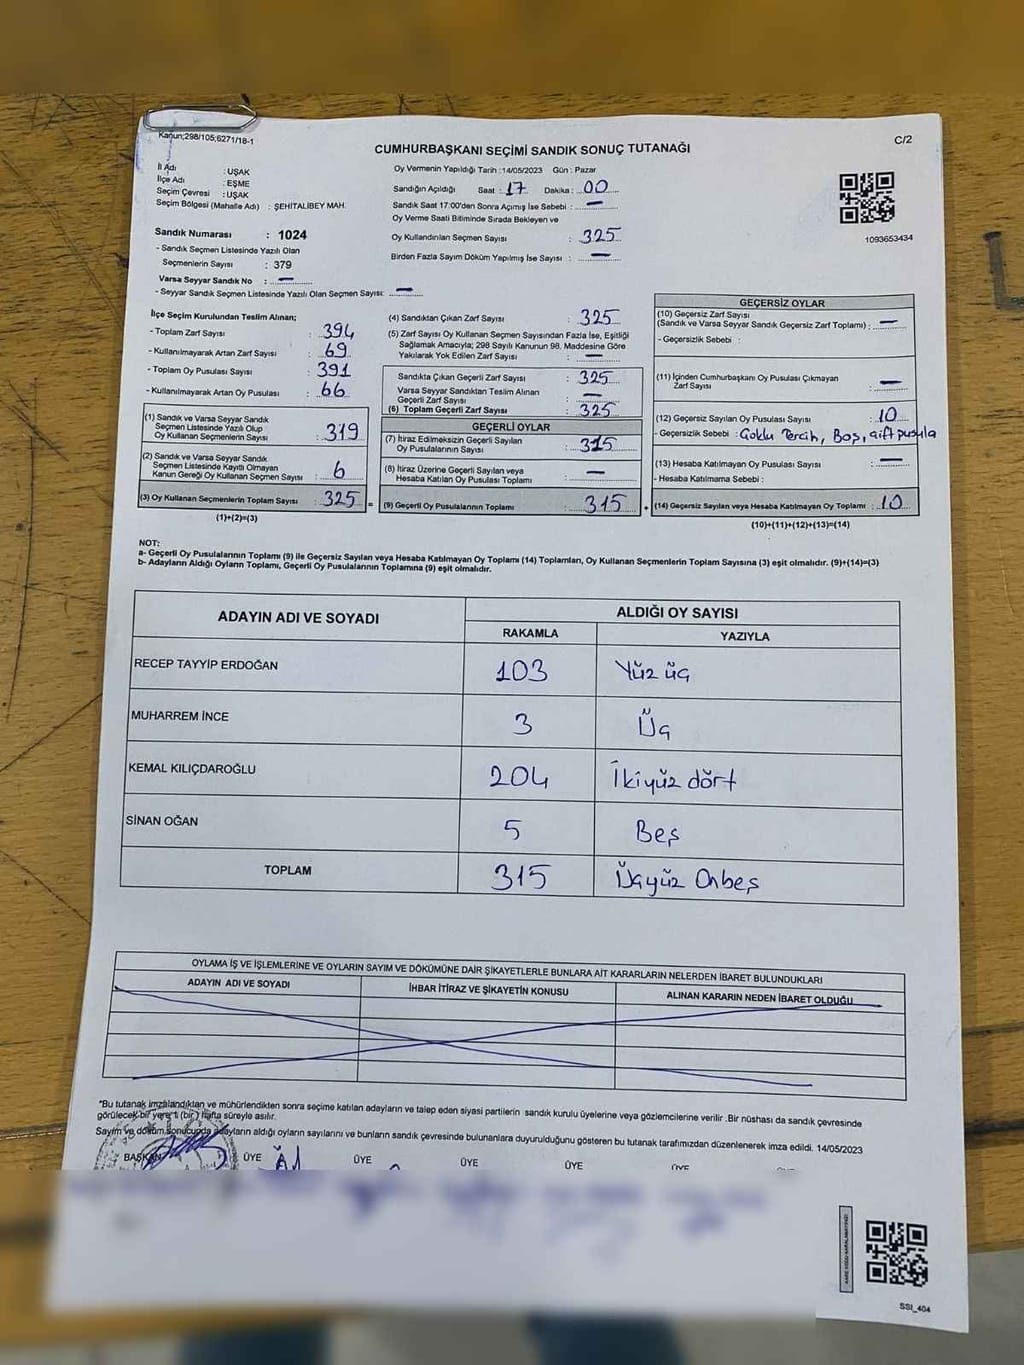 Kanun;298/105;6271/18-1
C/2
CUMHURBAŞKANI SEÇİMİ SANDIK SONUÇ TUTANAĞI
İl Adı : UŞAK
İlçe Adı : EŞME
Seçim Çevresi : UŞAK
Seçim Bölgesi (Mahalle Adı) : ŞEHİTALİBEY MAH.
Sandık Numarası : 1024
- Sandık Seçmen Listesinde Yazılı Olan
Seçmenlerin Sayısı : 379
Varsa Seyyar Sandık No : —
- Seyyar Sandık Seçmen Listesinde Yazılı Olan Seçmen Sayısı: —
Oy Vermenin Yapıldığı Tarih :14/05/2023 Gün : Pazar
Sandığın Açıldığı Saat : 17 Dakika : 00
Sandık Saat 17:00'den Sonra Açımış İse Sebebi : —
Oy Verme Saati Bitiminde Sırada Bekleyen ve
Oy Kullandırılan Seçmen Sayısı : 325
Birden Fazla Sayım Döküm Yapılmış İse Sayısı : —
1093653434
İlçe Seçim Kurulundan Teslim Alınan;
- Toplam Zarf Sayısı : 394
- Kullanılmayarak Artan Zarf Sayısı : 69
- Toplam Oy Pusulası Sayısı : 391
- Kullanılmayarak Artan Oy Pusulası : 66
(1) Sandık ve Varsa Seyyar Sandık
Seçmen Listesinde Yazılı Olup
Oy Kullanan Seçmenlerin Sayısı : 319
(2) Sandık ve Varsa Seyyar Sandık
Seçmen Listesinde Kayıtlı Olmayan
Kanun Gereği Oy Kullanan Seçmen Sayısı : 6
(3) Oy Kullanan Seçmenlerin Toplam Sayısı : 325 =
(1)+(2)=(3)
(4) Sandıktan Çıkan Zarf Sayısı : 325
(5) Zarf Sayısı Oy Kullanan Seçmen Sayısından Fazla İse, Eşitliği
Sağlamak Amacıyla; 298 Sayılı Kanunun 98. Maddesine Göre
Yakılarak Yok Edilen Zarf Sayısı : —
Sandıkta Çıkan Geçerli Zarf Sayısı : 325
Varsa Seyyar Sandıktan Teslim Alınan
Geçerli Zarf Sayısı : —
(6) Toplam Geçerli Zarf Sayısı : 325
GEÇERLİ OYLAR
(7) İtiraz Edilmeksizin Geçerli Sayılan
Oy Pusulalarının Sayısı : 315
(8) İtiraz Üzerine Geçerli Sayılan veya
Hesaba Katılan Oy Pusulası Toplamı : —
(9) Geçerli Oy Pusulalarının Toplamı : 315 +
GEÇERSİZ OYLAR
(10) Geçersiz Zarf Sayısı
(Sandık ve Varsa Seyyar Sandık Geçersiz Zarf Toplamı) : —
- Geçersizlik Sebebi :
(11) İçinden Cumhurbaşkanı Oy Pusulası Çıkmayan
Zarf Sayısı : —
(12) Geçersiz Sayılan Oy Pusulası Sayısı : 10
- Geçersizlik Sebebi : Çoklu Tercih, Boş, çift pusula
(13) Hesaba Katılmayan Oy Pusulası Sayısı : —
- Hesaba Katılmama Sebebi :
(14) Geçersiz Sayılan veya Hesaba Katılmayan Oy Toplamı : 10
(10)+(11)+(12)+(13)=(14)
NOT:
a- Geçerli Oy Pusulalarının Toplamı (9) ile Geçersiz Sayılan veya Hesaba Katılmayan Oy Toplamı (14) Toplamları, Oy Kullanan Seçmenlerin Toplam Sayısına (3) eşit olmalıdır. (9)+(14)=(3)
b- Adayların Aldığı Oyların Toplamı, Geçerli Oy Pusulalarının Toplamına (9) eşit olmalıdır.
ADAYIN ADI VE SOYADI ALDIĞI OY SAYISI
RAKAMLA YAZIYLA
RECEP TAYYİP ERDOĞAN 103 Yüz üç
MUHARREM İNCE 3 Üç
KEMAL KILIÇDAROĞLU 204 İkiyüz dört
SİNAN OĞAN 5 Beş
TOPLAM 315 Üçyüz Onbeş
OYLAMA İŞ VE İŞLEMLERİNE VE OYLARIN SAYIM VE DÖKÜMÜNE DAİR ŞİKAYETLERLE BUNLARA AİT KARARLARIN NELERDEN İBARET BULUNDUKLARI
ADAYIN ADI VE SOYADI İHBAR İTİRAZ VE ŞİKAYETİN KONUSU ALINAN KARARIN NEDEN İBARET OLDUĞU
"Bu tutanak imzalandıktan ve mühürlendikten sonra seçime katılan adayların ve talep eden siyasi partilerin sandık kurulu üyelerine veya gözlemcilerine verilir .Bir nüshası da sandık çevresinde
görülecek bir yere 1 (bir ) hafta süreyle asılır.
Sayım ve döküm sonucunda adayların aldığı oyların sayılarını ve bunların sandık çevresinde bulunanlara duyurulduğunu gösteren bu tutanak tarafımızdan düzenlenerek imza edildi. 14/05/2023
BAŞKAN ÜYE ÜYE ÜYE ÜYE ÜYE
SSI_404